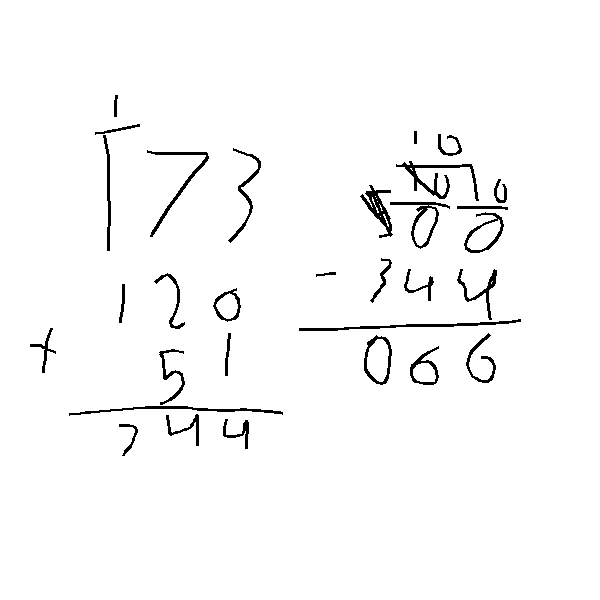 1
173
120
+ 51
344
10
10 10
00
- 344
066